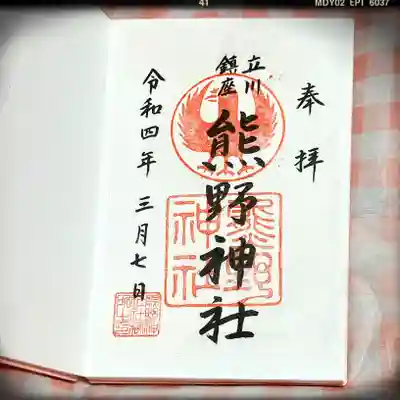 41
MDY02 EPT 6037
奉拝
立川
鎮座
熊野神社
熊野
神社
令和四年 三月七日